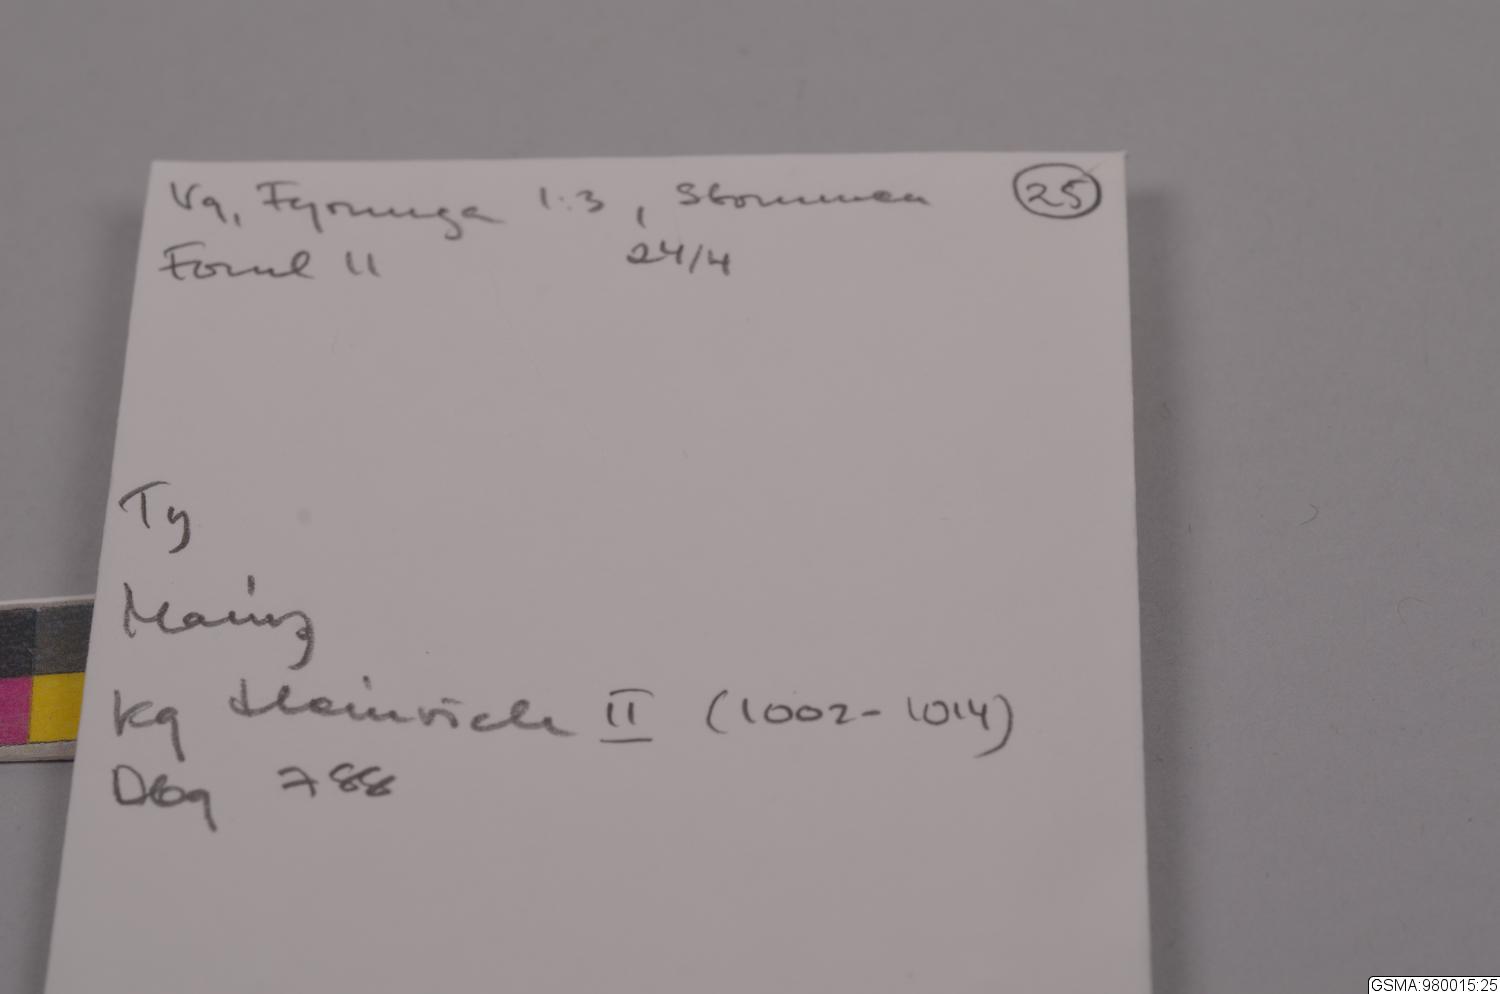 Vg, Fyrunga 1:3, Stommen 25
Fornl 11 24/4
Ty
Mainz
Kg Heinrich II (1002-1014)
Dbg 788
GSMA:980015:25